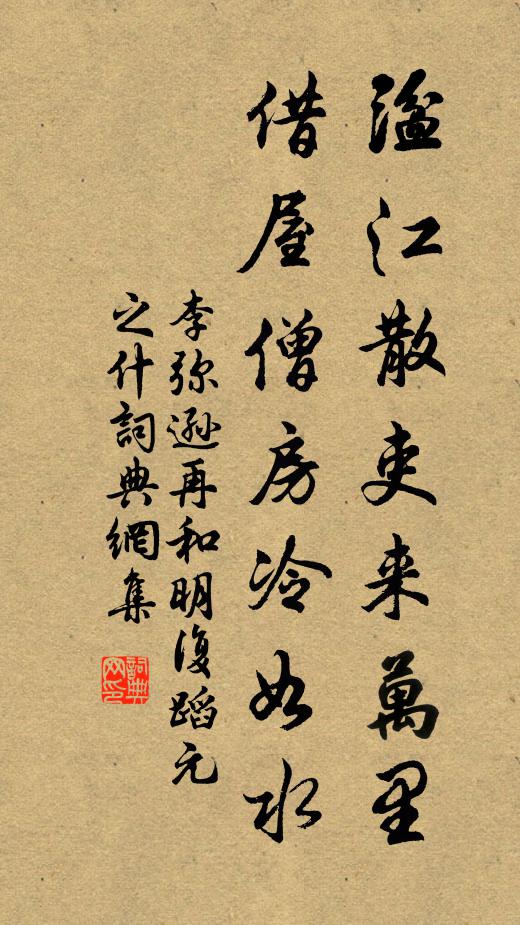 湓江散吏来萬里
借屋僧房冷如水
李弥遜再和明復蹈元
之什詞典網集
詞典
网印